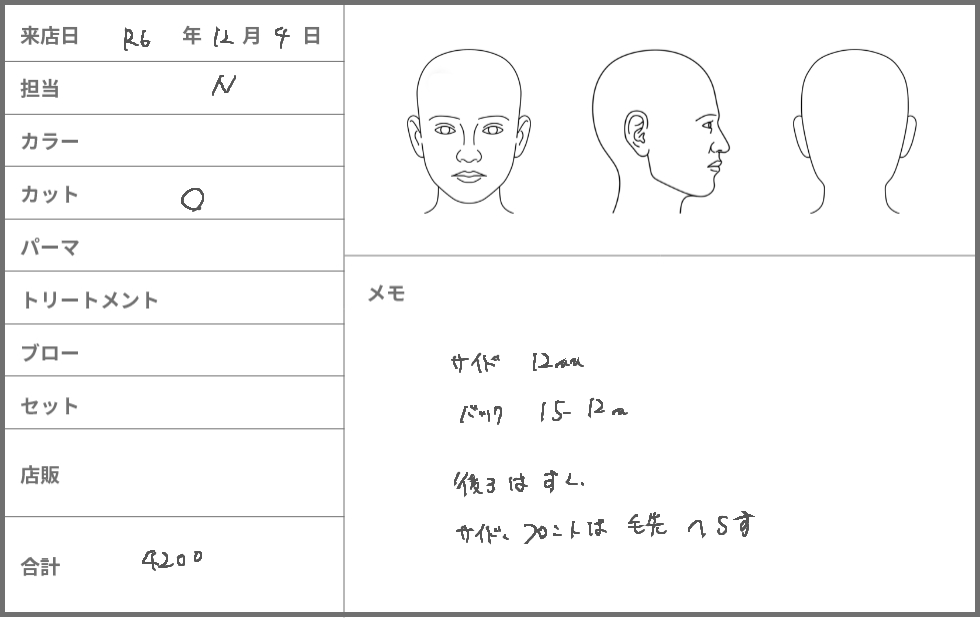 来店日 R6 年 12 月 4 日
担当 N
カラー
カット ○
パーマ
トリートメント
ブロー
セット
店販
合計 4200
メモ
サイド 12mm
バック 15-12m
後ろはすく.
サイド、フロントは毛先へらす